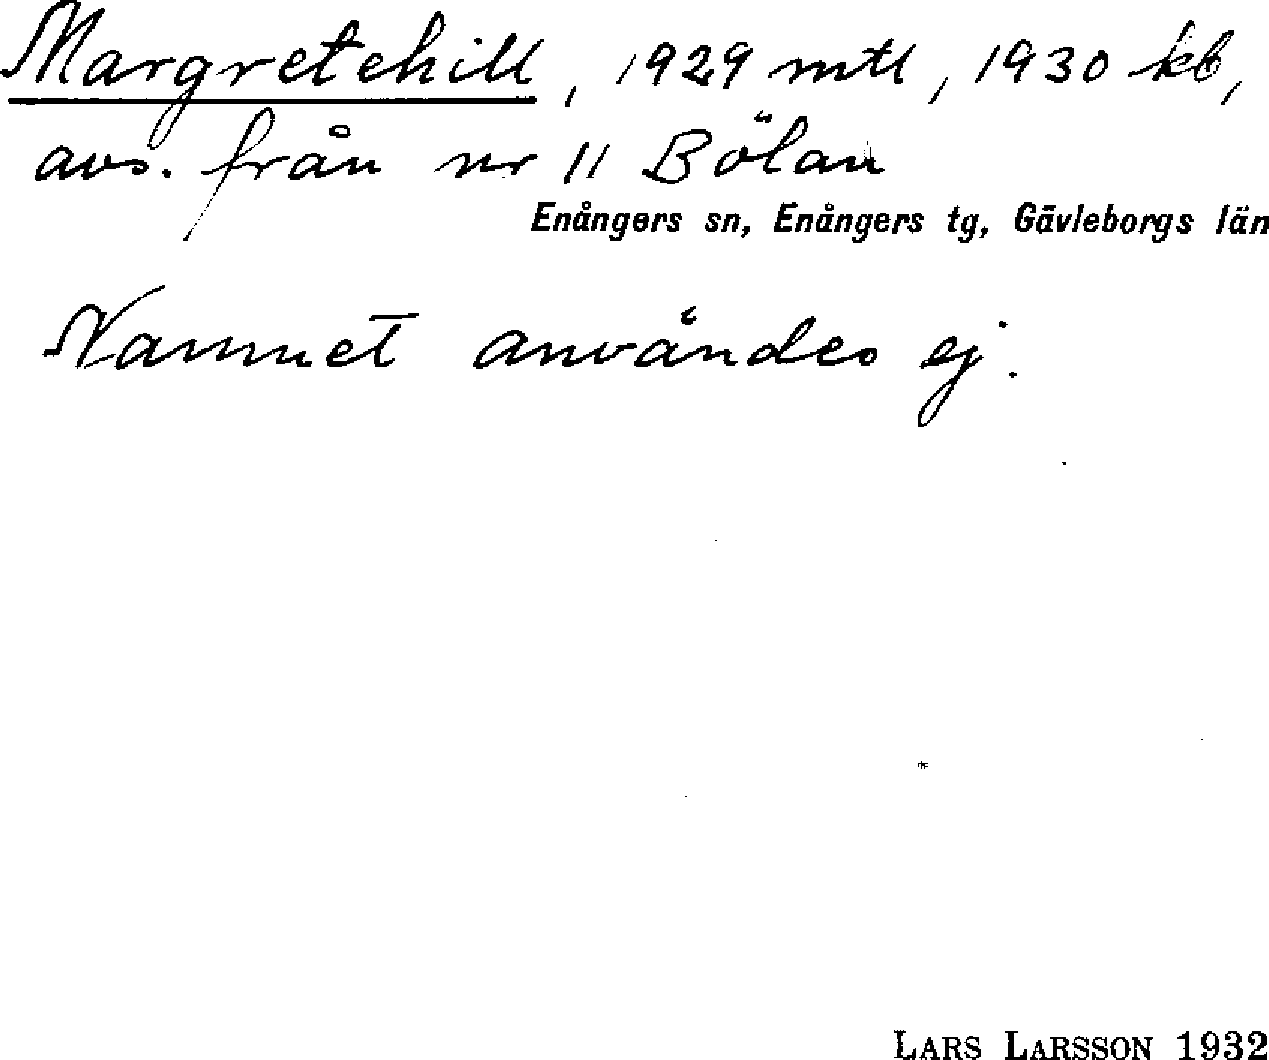 Margretehill, 1929 mtl, 1930 kb,
avs. från nr 11 Bölan
Enångers sn, Enångers tg, Gävleborgs län
Namnet användes ej.
LARS LARSSON 1932